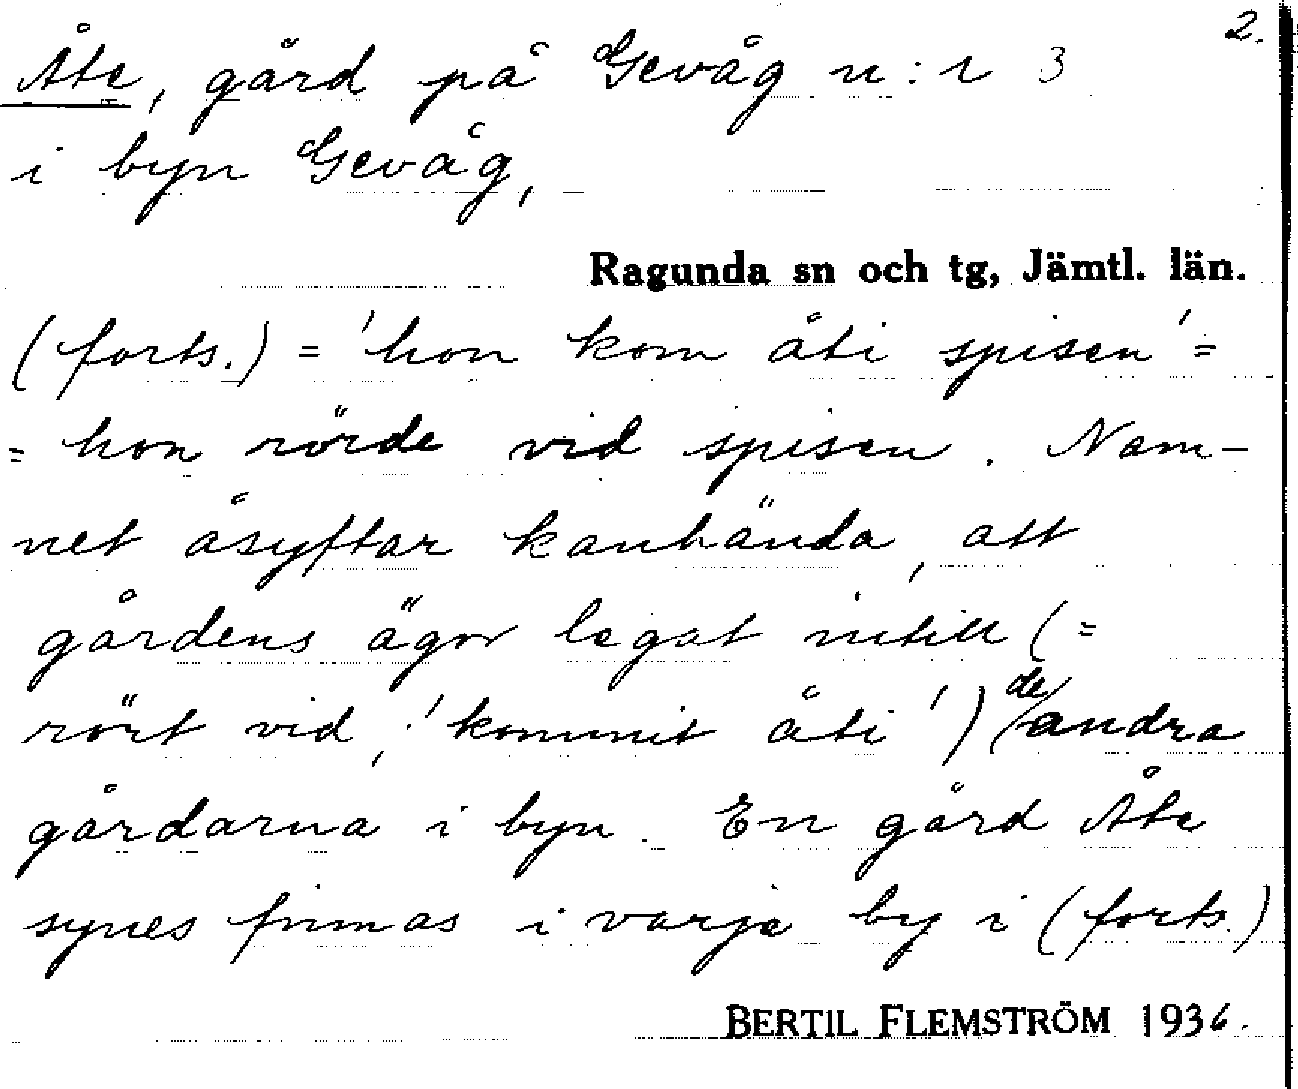 2.
Åte, gård på Gevåg n:r 3
i byn Gevåg,
Ragunda sn och tg, Jämtl. län.
(forts.) = 'hon kom åti spisen' =
= hon rörde vid spisen. Nam-
net åsyftar kanhända, att
gårdens ägor legat intill (=
rört vid, 'kommit åti') de andra
gårdarna i byn. En gård Åte
synes finnas i varje by i (forts.)
BERTIL FLEMSTRÖM 1936.